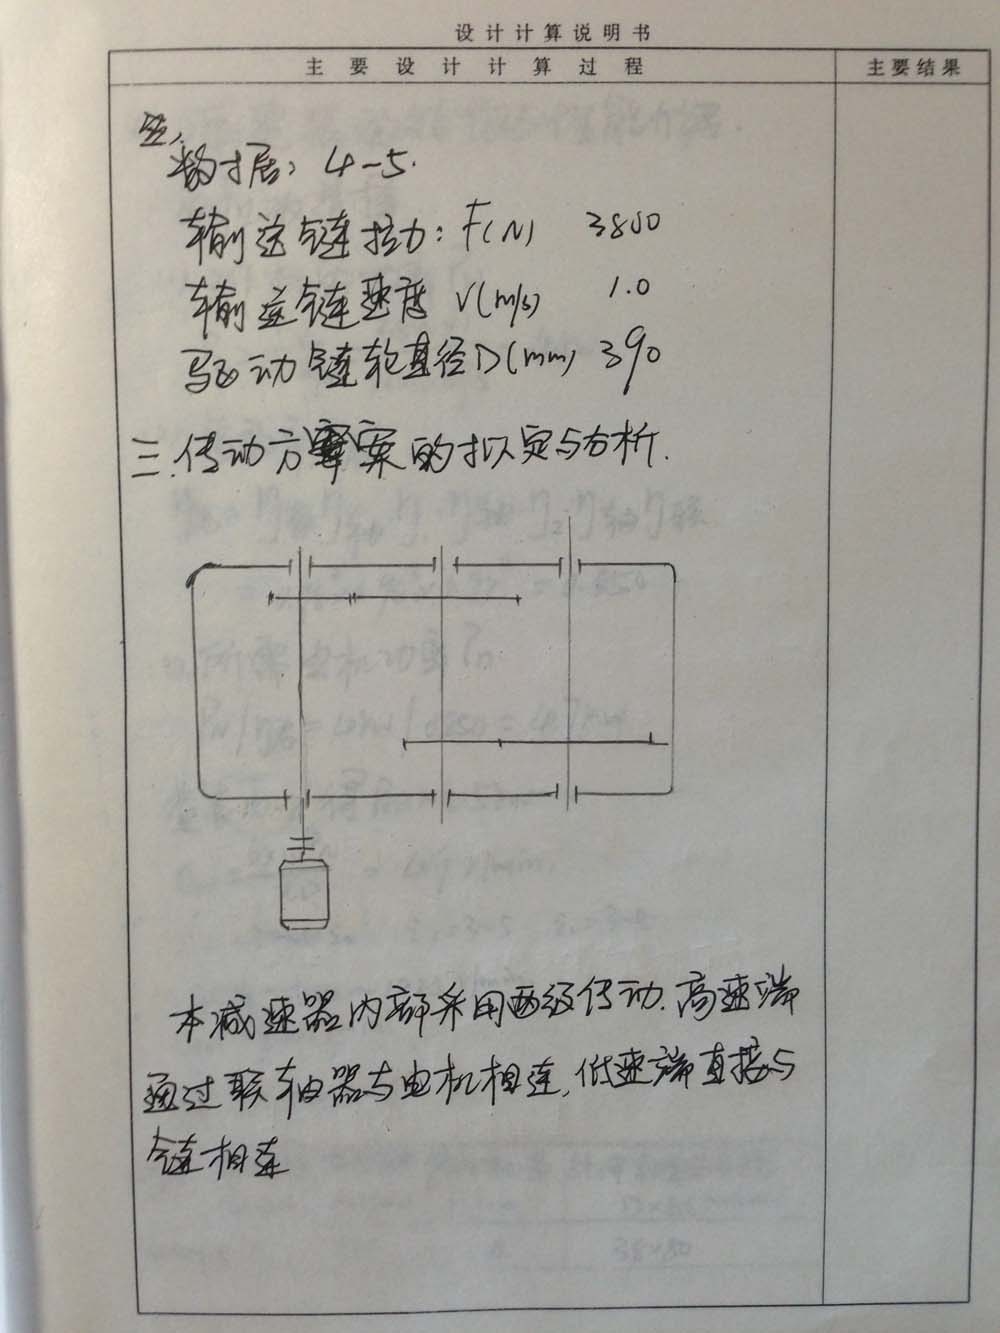 设计计算说明书
主要设计计算过程
主要结果
数据：4-5.
输送链拉力：F(N) 3800
输送链速度 V(m/s) 1.0
驱动链轮直径D(mm) 390
三.传动方案的拟定与分析.
本减速器内部采用两级传动.高速端
通过联轴器与电机相连,低速端直接与
链相连